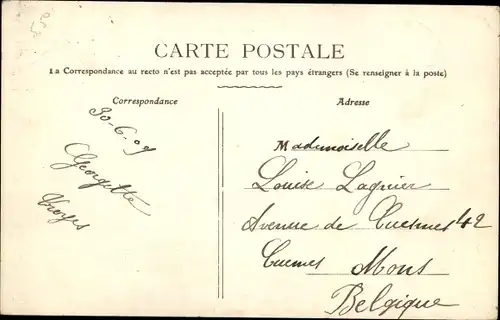 550
CARTE POSTALE
La Correspondance au recto n'est pas acceptée par tous les pays étrangers (Se renseigner à la poste)
Correspondance
30-6-09
Georgette
Troyes
Adresse
Mademoiselle
Louise Lagnier
Avenue de Cuesmes 42
Cuesmes Mons
Belgique